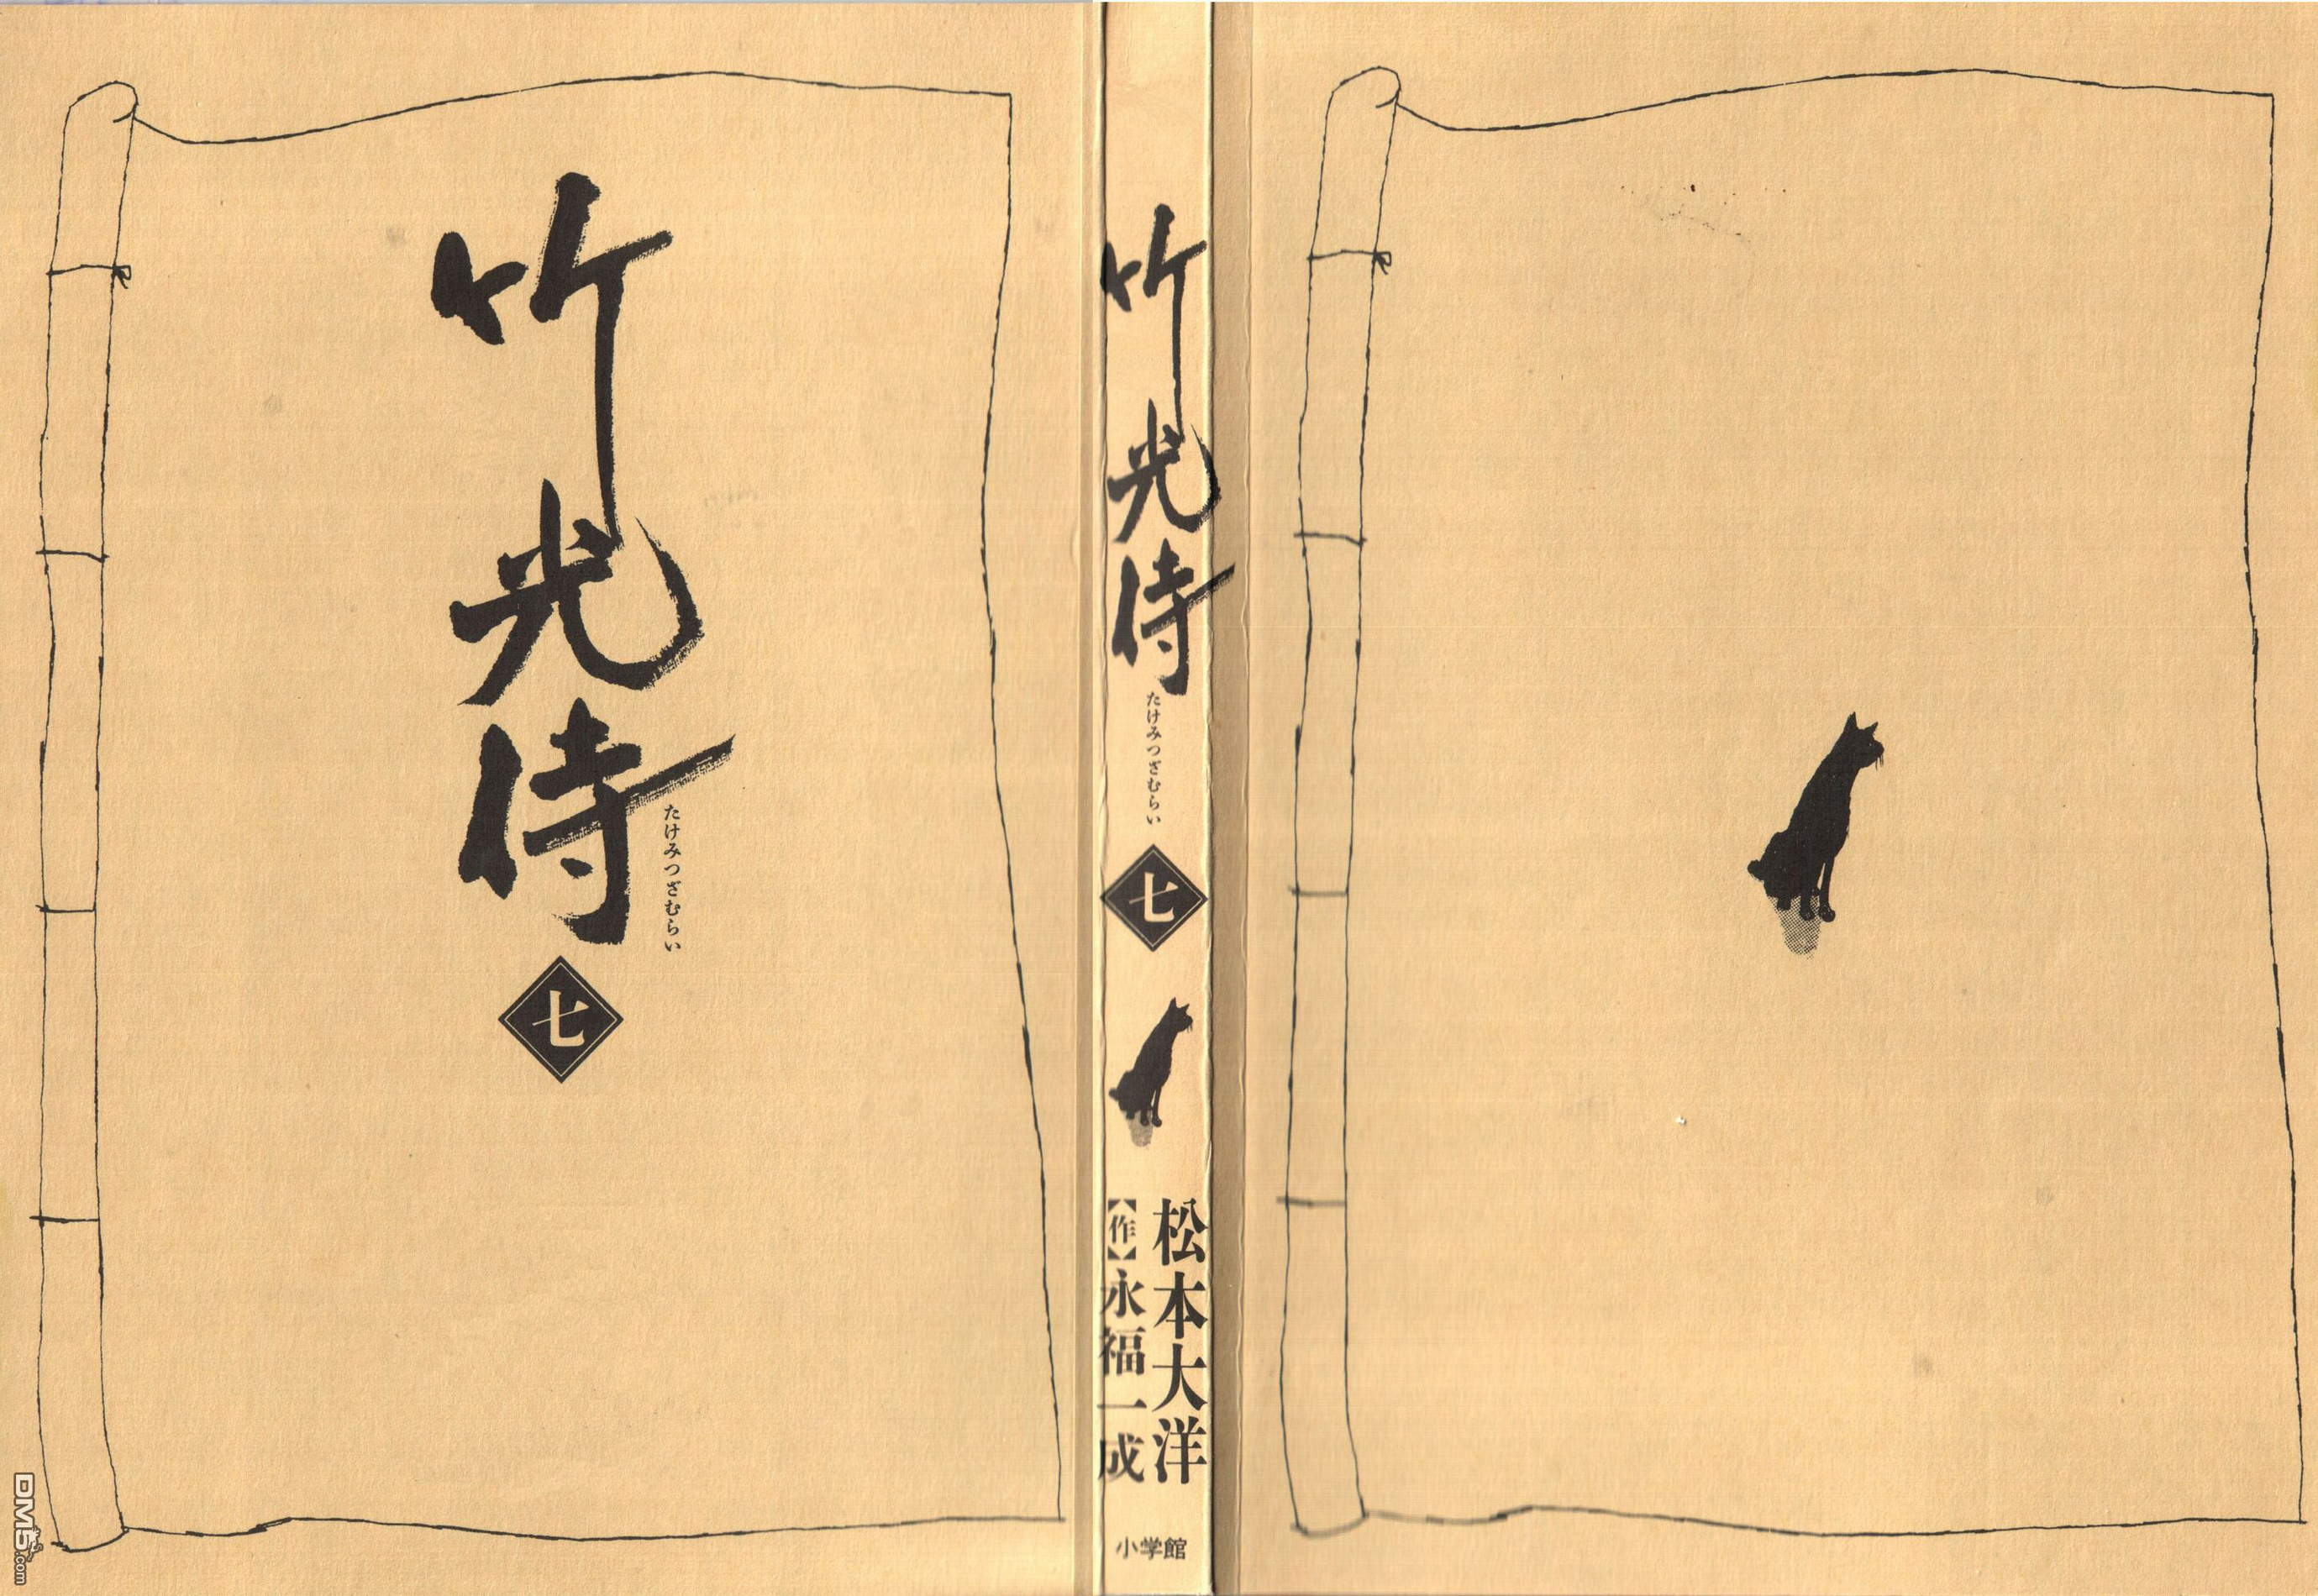 竹光侍
たけみつざむらい
七
竹光侍
たけみつざむらい
七
松本大洋
【作】永福一成
小学館
DM5.com